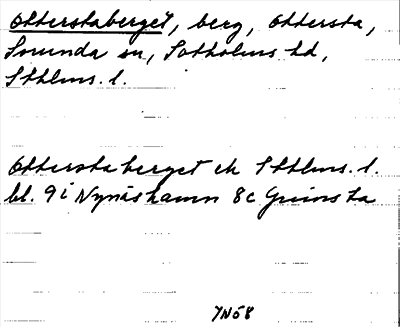 Otterstaberget, berg, Ottersta,
Sorunda sn, Sotholms hd,
Sthlms. l.
Ottersta berget ek Sthlms. l.
bl. 9i Nynäshamn 8c Grimsta
YN58